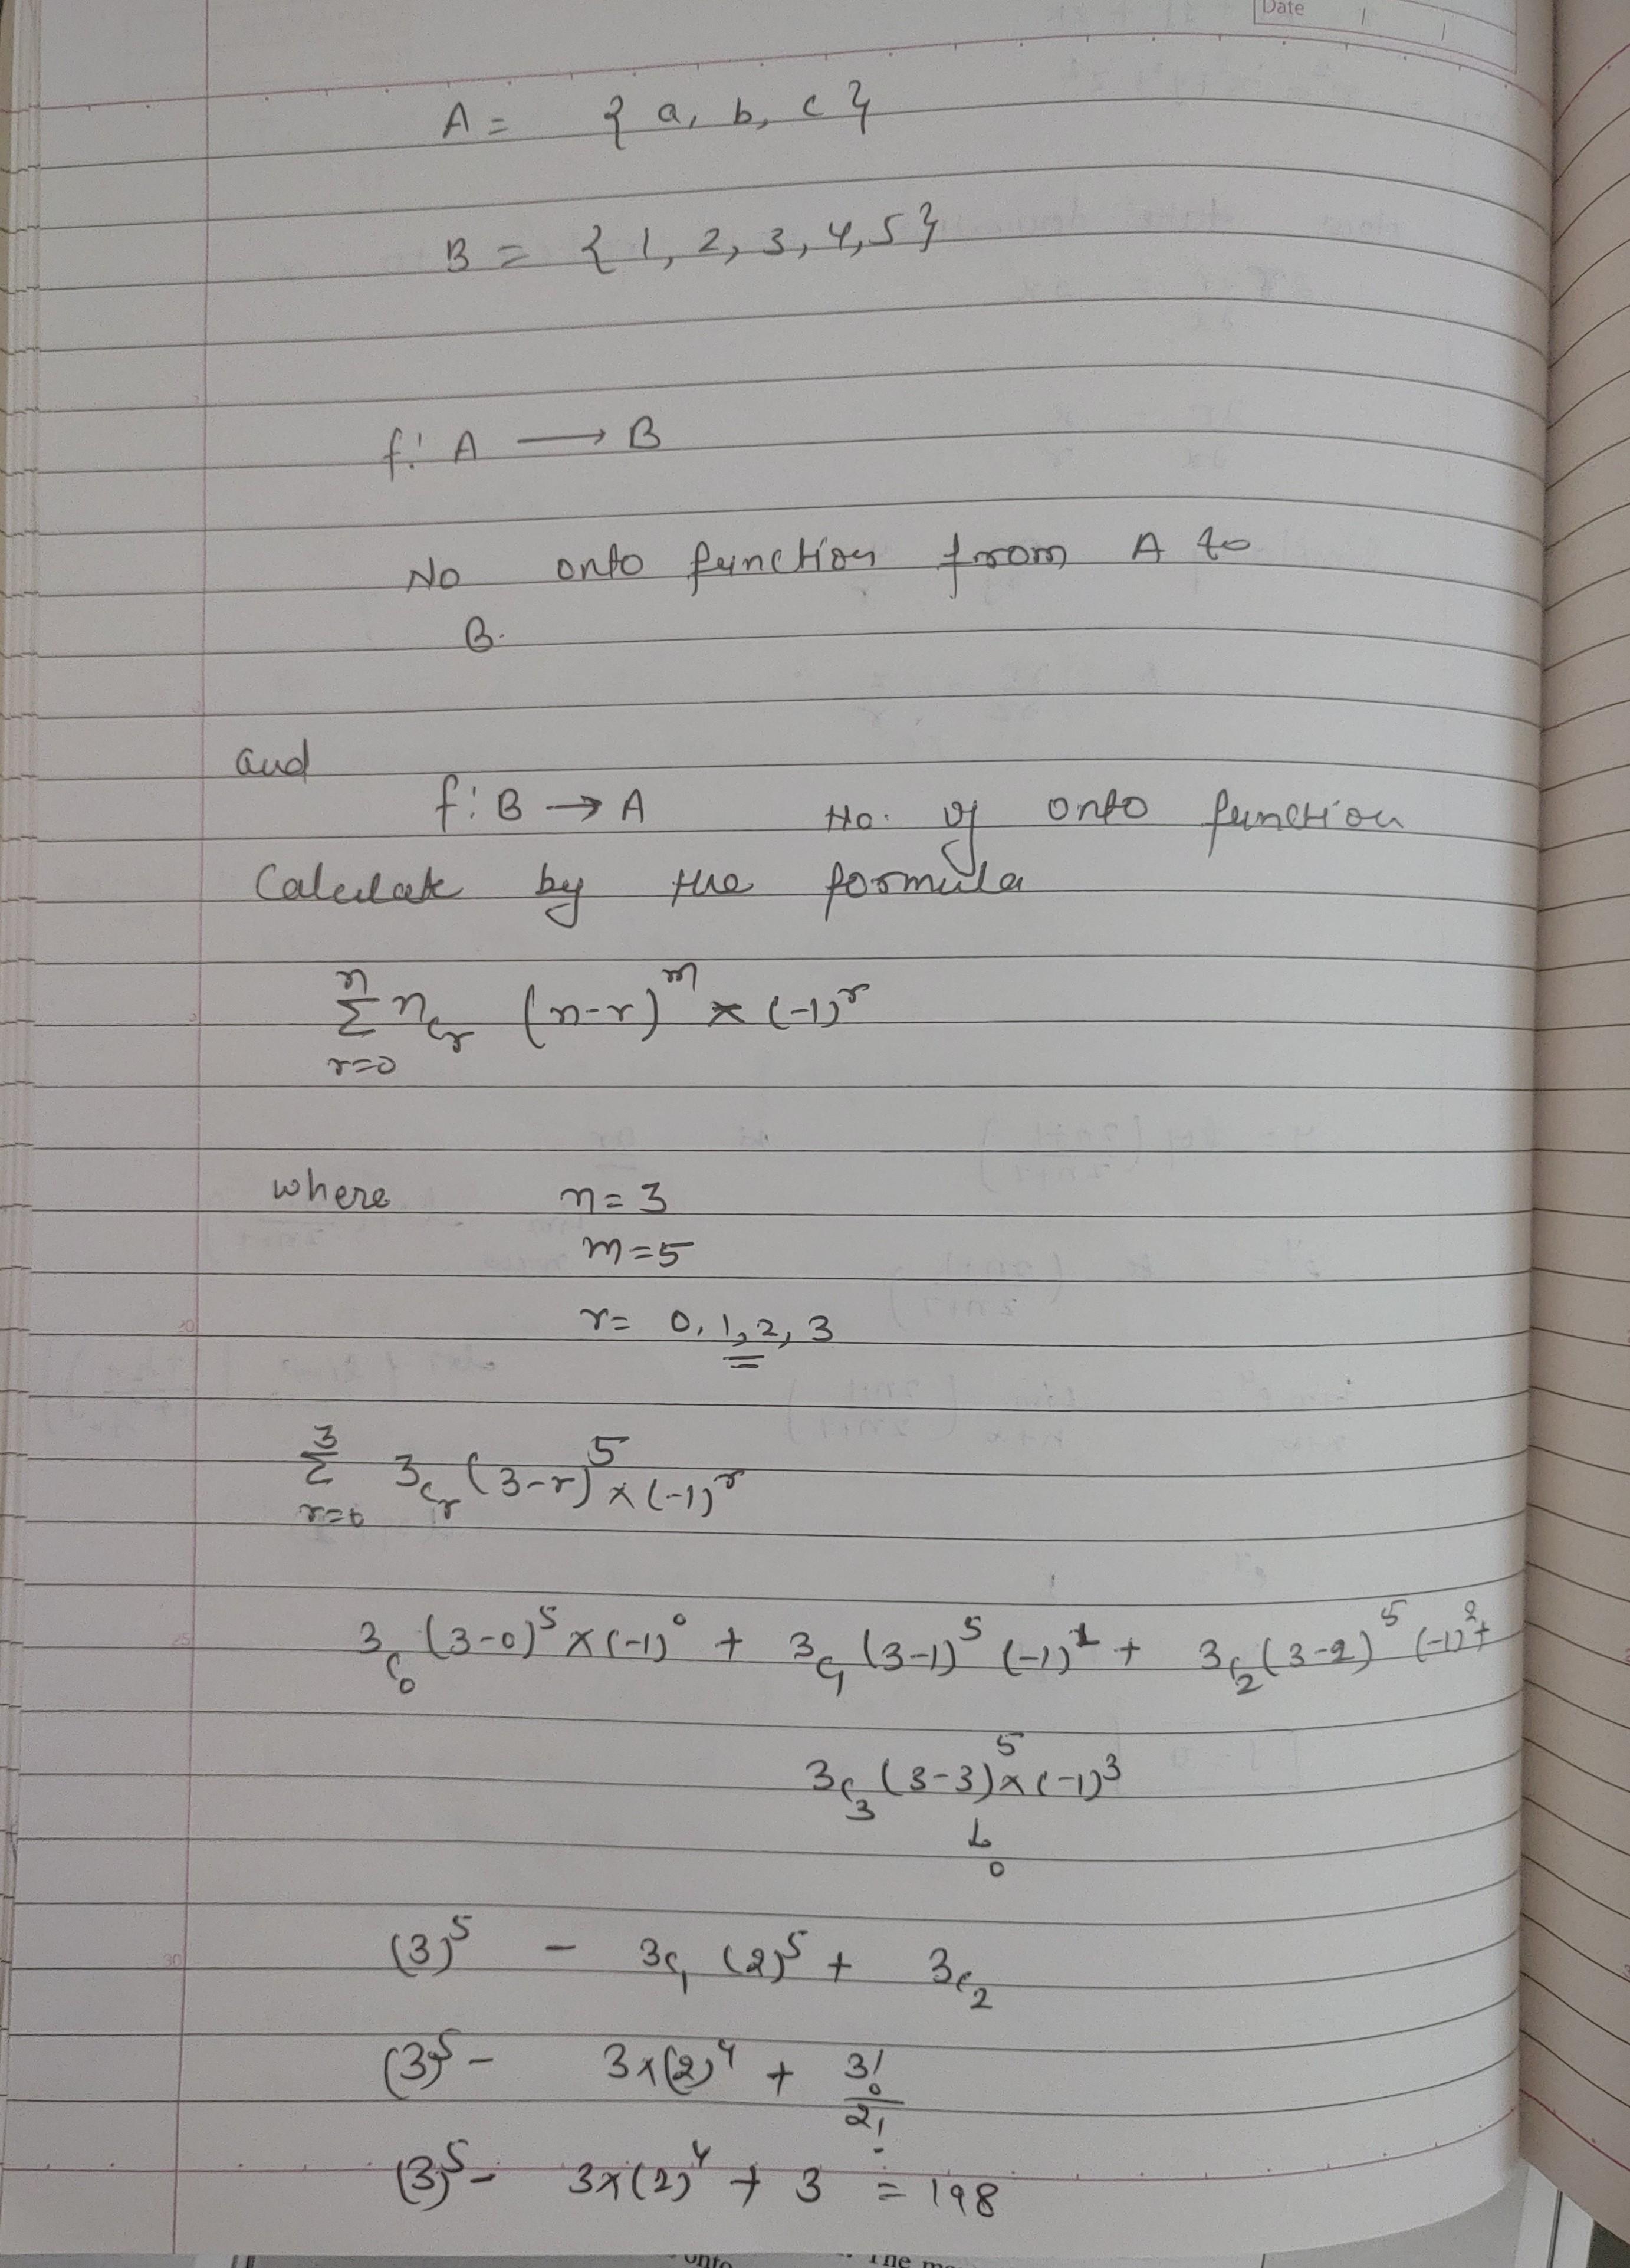 Date
A = { a, b, c }
B = { 1, 2, 3, 4, 5 }
f: A → B
No onto function from A to
B.
and
f: B → A No. of onto function
Calculate by the formula
n
Σ nCr (n-r)^m × (-1)^r
r=0
where n = 3
m = 5
r = 0, 1, 2, 3
3
Σ 3Cr (3-r)^5 × (-1)^r
r=0
3C0 (3-0)^5 × (-1)^0 + 3C1 (3-1)^5 (-1)^1 + 3C2 (3-2)^5 (-1)^2 +
3C3 (3-3)^5 × (-1)^3
0
(3)^5 - 3C1 (2)^5 + 3C2
(3)^5 - 3×(2)^4 + 3!/2!
(3)^5 - 3×(2)^4 + 3 = 198
onto
The